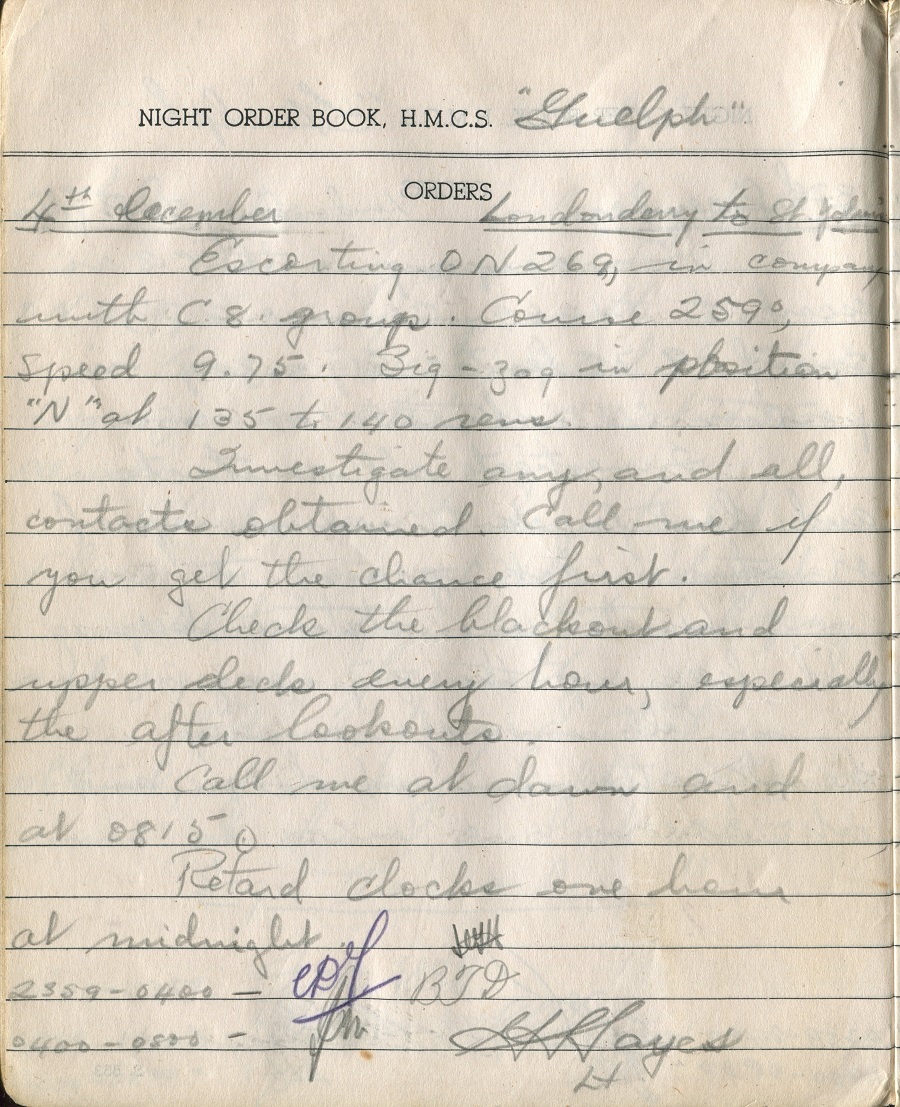 NIGHT ORDER BOOK, H.M.C.S. "Guelph"
ORDERS
4th December Londonderry to St. John's
Escorting ON 269, in company
with C 8. group. Course 259°,
speed 9.75. Zig-zag in position
"N" at 135 to 140 revs.
Investigate any, and all,
contacts obtained. Call me if
you get the chance first.
Check the blackout and
upper deck every hour, especially
the after lookouts.
Call me at dawn and
at 0815
Retard clocks one hour
at midnight.
2359-0400 - BTD
0400-0800 - Hayes
Lt